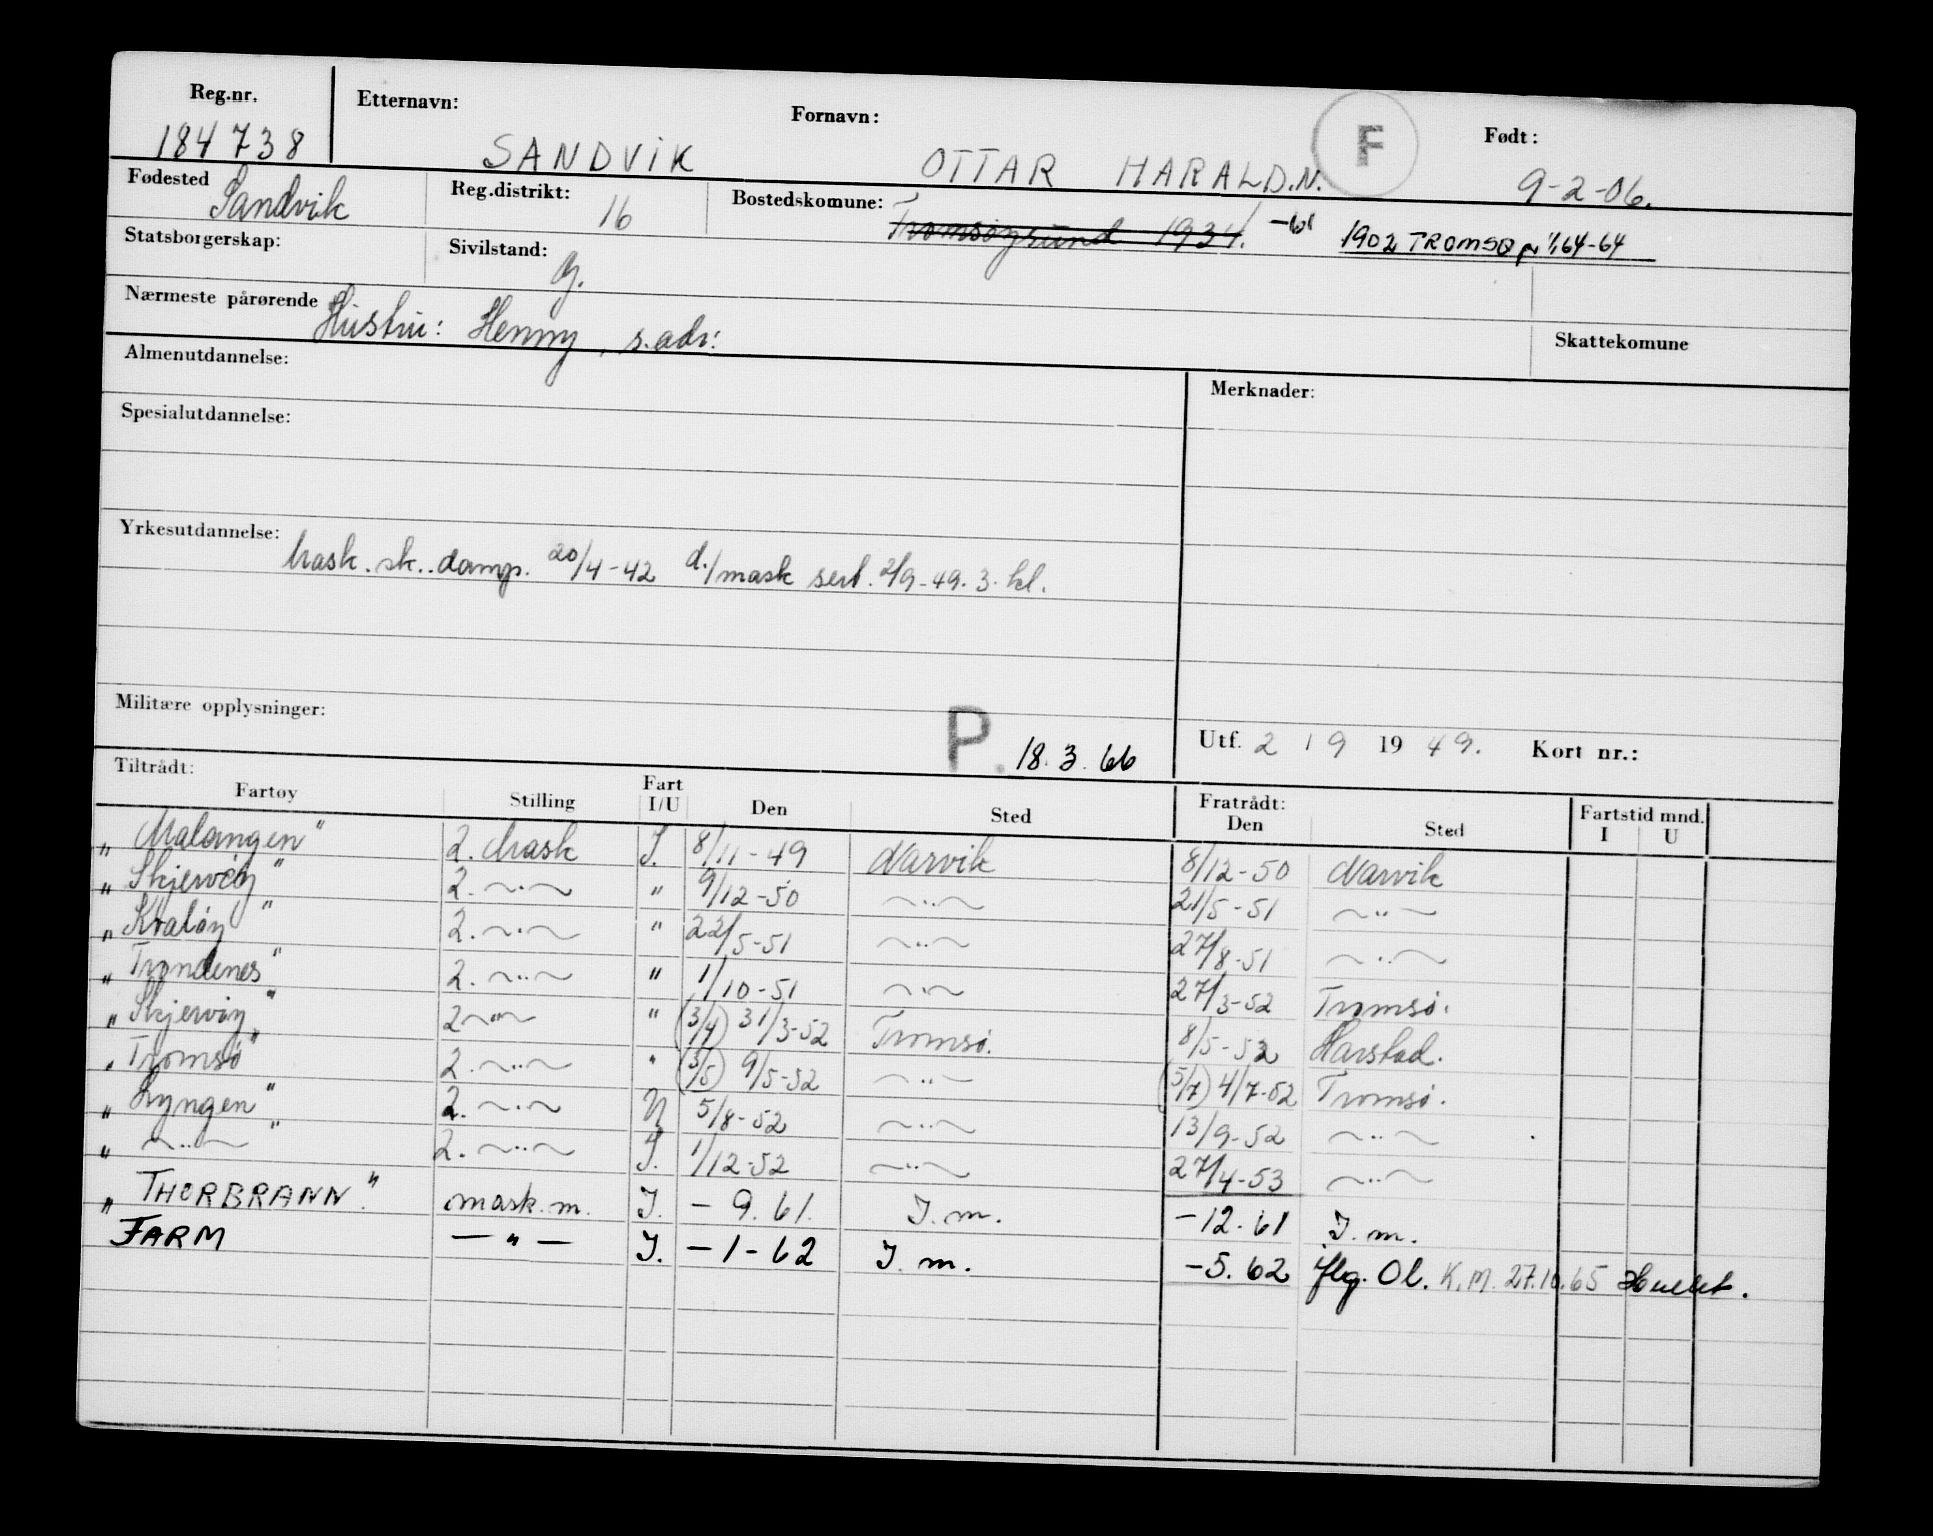 Reg.nr. Etternavn: Fornavn: F Født:
184738 SANDVIK OTTAR HARALD.N. 9-2-06.
Fødested Sandvik Reg.distrikt: 16 Bostedskomune: Tromsøysund 1934. -61 1902 TROMSØ pr 1/1 64-64
Statsborgerskap: Sivilstand: g.
Nærmeste pårørende Hustru: Henny, s.adr: Skattekomune
Almenutdannelse: Merknader:
Spesialutdannelse:
Yrkesutdannelse: Mask. sk. damp. 20/4-42 d./mask sert. 2/9-49. 3. kl.
Militære opplysninger: P. 18.3.66 Utf. 2 / 9 19 49. Kort nr.:
Tiltrådt: Fratrådt: Fartstid mnd.
Fartøy Stilling Fart I/U Den Sted Den Sted I U
"Malangen" 2. Mask I. 8/11-49 Narvik 8/12-50 Narvik
"Skjervøy" 2. ~"~ " 9/12-50 ~"~ 21/5-51 ~"~
"Kvaløy" 2. ~"~ " 22/5-51 ~"~ 27/8-51 ~"~
"Trondenes" 2. ~"~ " 1/10-51 ~"~ 27/3-52 Tromsø.
"Skjervøy" 2 ~"~ " (3/4) 31/3-52 Tromsø. 8/5-52 Harstad.
"Tromsø" 2. ~"~ " (3/5) 9/5-52 ~"~ (5/7) 4/7-52 Tromsø.
"Lyngen" 2. ~"~ U 5/8-52 ~"~ 13/9-52 ~"~
" ~"~ " 2. ~"~ I. 1/12-52 ~"~ 27/4-53 ~"~
"THORBRANN." mask.m. I. - 9.61. I.m. -12.61 I.m.
FARM —"— I. -1-62 I.m. -5.62 iflg. Ol. K.M. 27.10.65